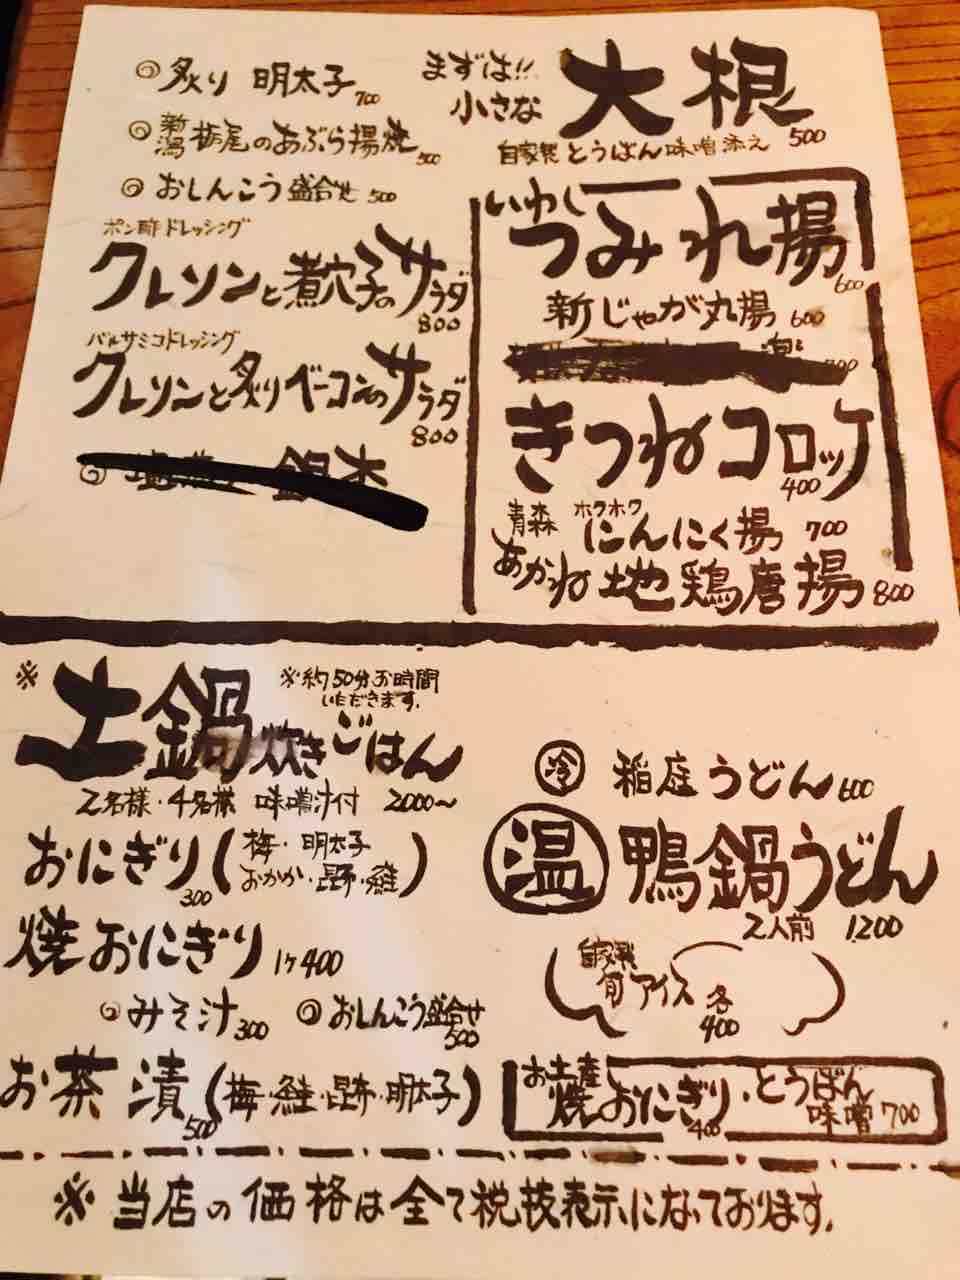 ◎炙り 明太子 700
◎新潟 栃尾のあぶら揚焼 500
◎おしんこう盛合せ 500
ポン酢ドレッシング
クレソンと煮穴子のサラダ 800
バルサミコドレッシング
クレソンと炙りベーコンのサラダ 800
まずは!! 小さな 大根 500
自家製とうばん味噌添え
いわしつみれ揚 600
新じゃが丸揚 600
きつねコロッケ 400
青森 ホクホク にんにく揚 700
あかね地鶏唐揚 800
※土鍋炊きごはん
※約50分お時間
いただきます.
2名様・4名様 味噌汁付 2000~
おにぎり(梅・明太子 おかか・昆布・鮭) 300
焼おにぎり 1ケ400
◎みそ汁 300 ◎おしんこう盛合せ 500
お茶漬(梅・鮭・昆布・明太子) 500
冷 稲庭うどん 600
温 鴨鍋うどん
2人前 1200
自家製 旬アイス 各400
お土産 焼おにぎり 400・とうばん味噌 700
※当店の価格は全て税抜表示になっております.